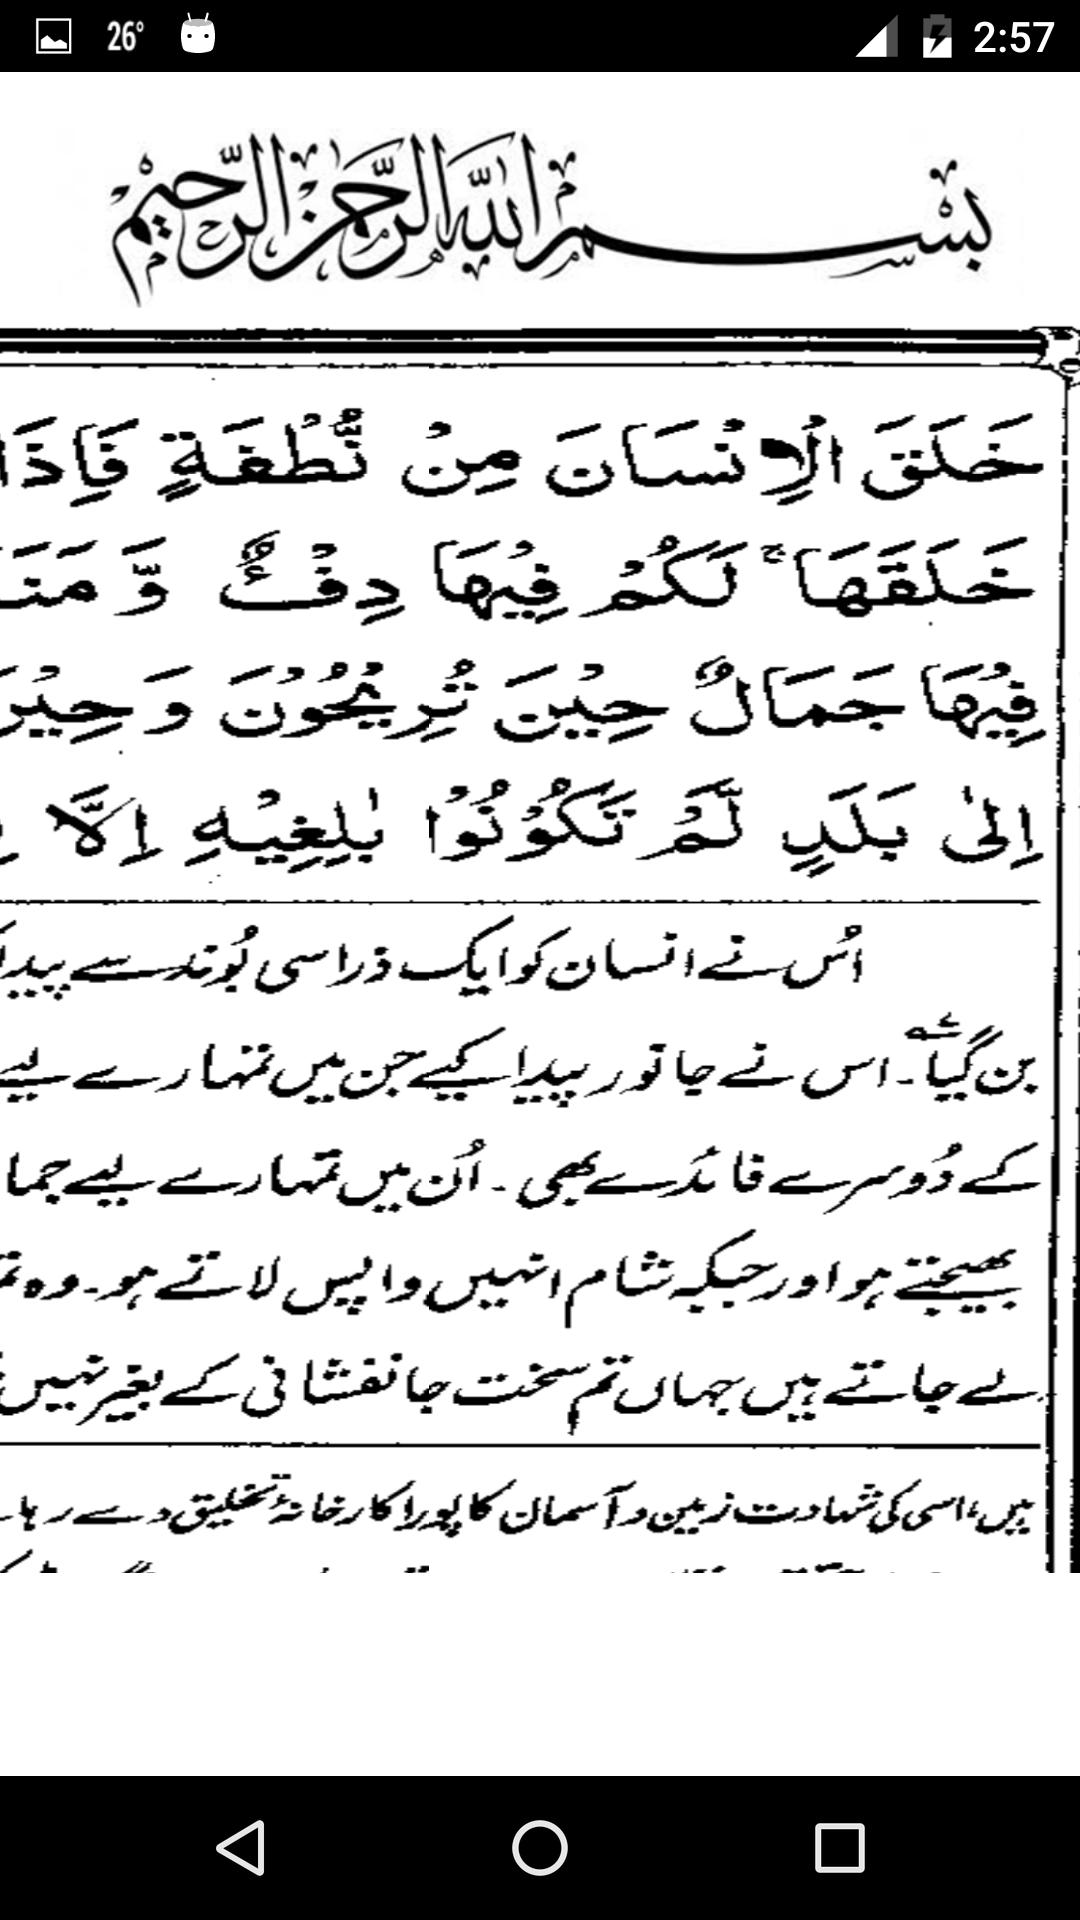 26° 2:57
بسم الله الرحمن الرحيم
خَلَقَ الْاِنْسَانَ مِنْ نُّطْفَةٍ فَاِذَا
خَلَقَهَا ۚ لَكُمْ فِيْهَا دِفْءٌ وَّ مَنَا
فِيْهَا جَمَالٌ حِيْنَ تُرِيْحُوْنَ وَ حِيْنَ
اِلٰى بَلَدٍ لَّمْ تَكُوْنُوْا بٰلِغِيْهِ اِلَّا
اُس نے انسان کو ایک ذرا سی بُوند سے پیدا
بن گیا۔ اس نے جانور پیدا کیے جن میں تمہارے لیے
کے دُوسرے فائدے بھی۔ اُن میں تمہارے لیے جما
بھیجتے ہو اور جبکہ شام انہیں واپس لاتے ہو۔ وہ
لے جاتے ہیں جہاں تم سخت جانفشانی کے بغیر نہیں
ہیں، اسی کی شہادت زمین و آسمان کا پورا کارخانۂ تخلیق دے رہا